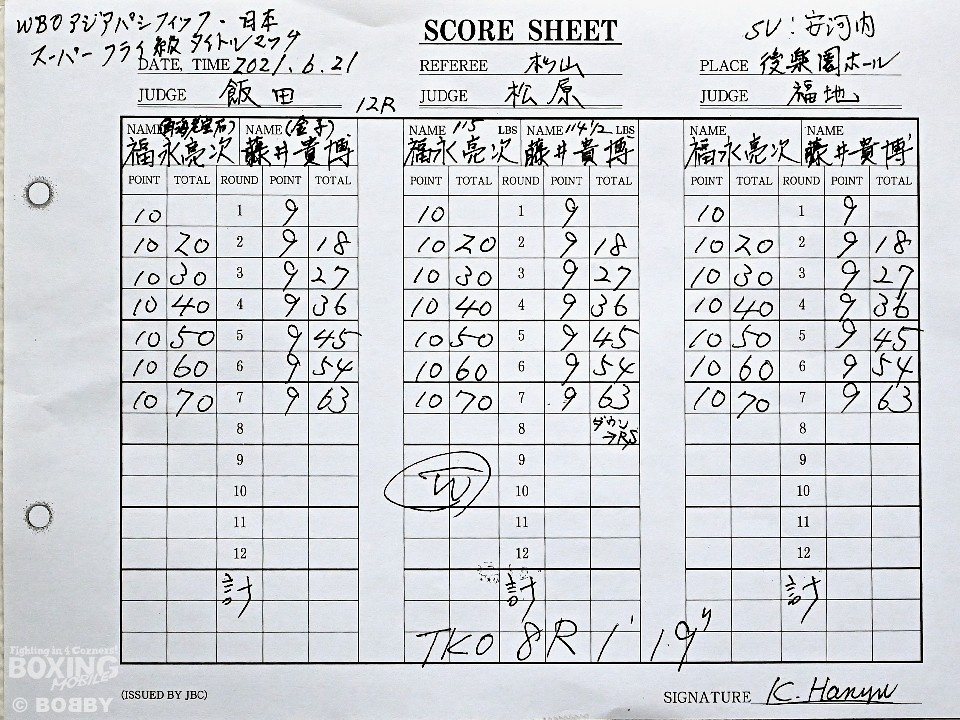 WBOアジアパシフィック・日本
スーパーフライ級タイトルマッチ
SCORE SHEET
SV:安河内
DATE, TIME 2021.6.21
REFEREE 杉山
PLACE 後楽園ホール
JUDGE 飯田
12R
JUDGE 松原
JUDGE 福地
NAME (角海老宝石) NAME (金子)
福永亮次 藤井貴博
NAME 115 LBS NAME 114 1/2 LBS
福永亮次 藤井貴博
NAME NAME
福永亮次 藤井貴博
POINT TOTAL ROUND POINT TOTAL POINT TOTAL ROUND POINT TOTAL POINT TOTAL ROUND POINT TOTAL
10 1 9 10 1 9 10 1 9
10 20 2 9 18 10 20 2 9 18 10 20 2 9 18
10 30 3 9 27 10 30 3 9 27 10 30 3 9 27
10 40 4 9 36 10 40 4 9 36 10 40 4 9 36
10 50 5 9 45 10 50 5 9 45 10 50 5 9 45
10 60 6 9 54 10 60 6 9 54 10 60 6 9 54
10 70 7 9 63 10 70 7 9 63 10 70 7 9 63
8 8 ダウン→RS 8
9 9 9
10 W 10 10
11 11 11
12 12 12
計 計 計
TKO 8R 1' 19"
Fighting in 4 Corners!
BOXING
MOBILE
© BOBBY
(ISSUED BY JBC)
SIGNATURE K. Hanyu